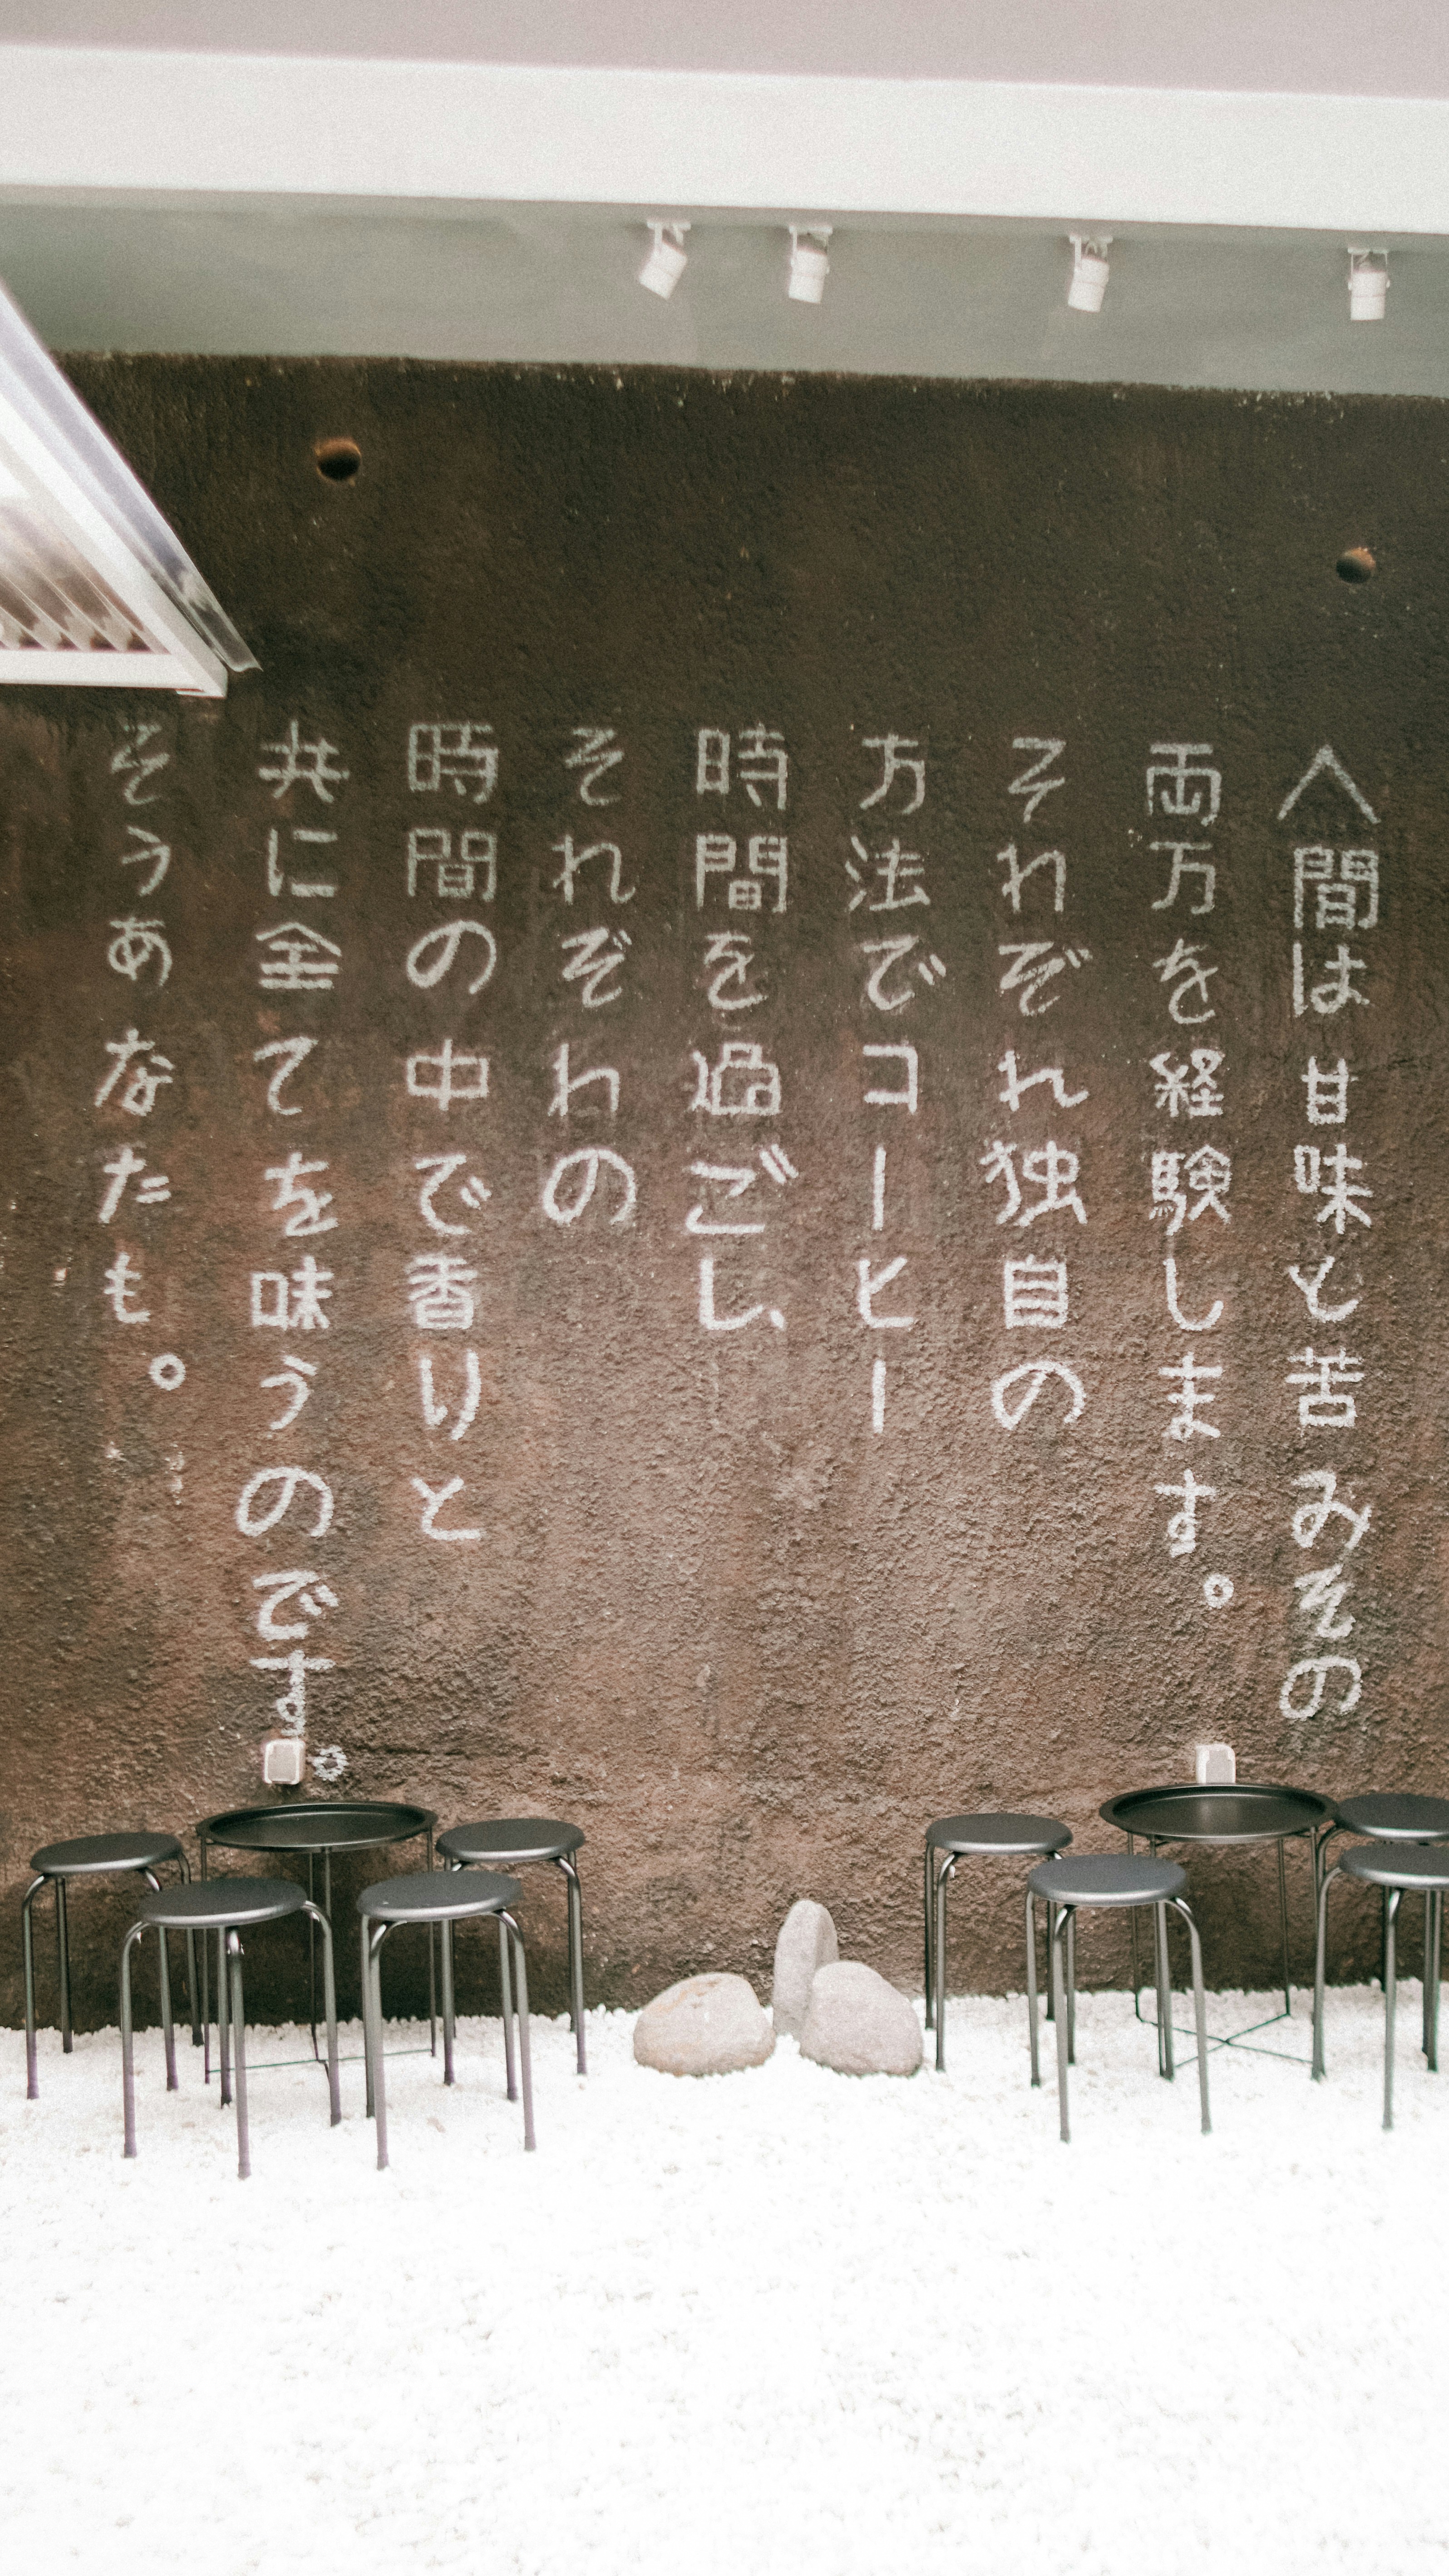 人間は甘味と苦みその
両万を経験します。
それぞれ独自の
方法でコーヒー
時間を過ごし、
それぞれの
時間の中で香りと
共に全てを味うのです。
そうあなたも。